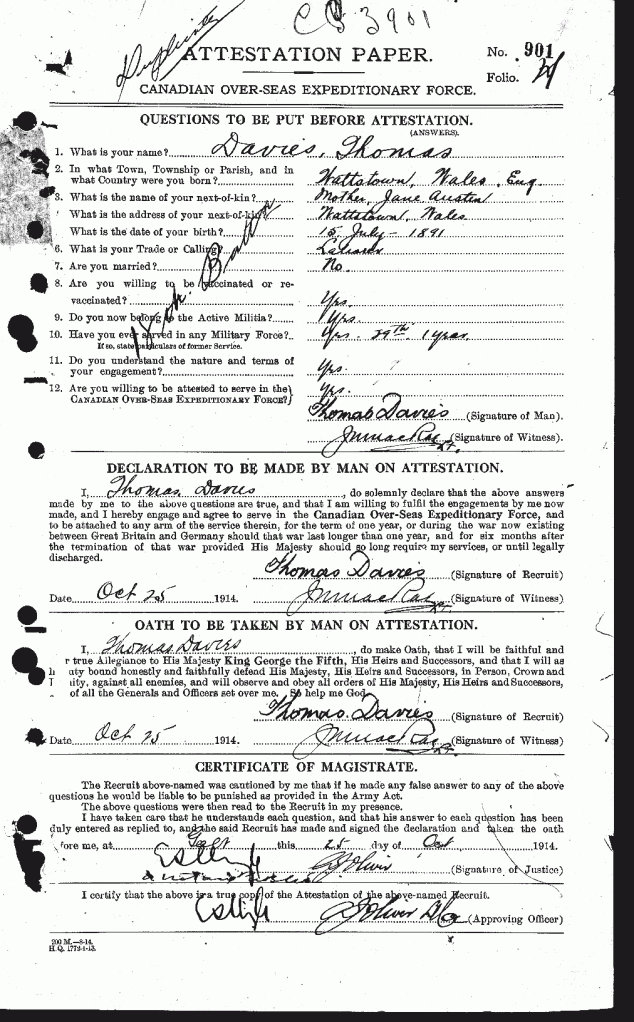 C 3901
Duplicate
ATTESTATION PAPER.
No. 901
Folio.
CANADIAN OVER-SEAS EXPEDITIONARY FORCE.
QUESTIONS TO BE PUT BEFORE ATTESTATION.
(ANSWERS).
1. What is your name? Davies, Thomas
2. In what Town, Township or Parish, and in
what Country were you born? Wattstown, Wales, Eng
3. What is the name of your next-of-kin? Mother, Jane Austin
4. What is the address of your next-of-kin? Wattstown, Wales
5. What is the date of your birth? 15 July - 1891
6. What is your Trade or Calling? Laborer
7. Are you married? No.
8. Are you willing to be vaccinated or re-
vaccinated? Yes.
9. Do you now belong to the Active Militia? Yes.
10. Have you ever served in any Military Force? Yes. 29th 1 year
If so, state particulars of former Service.
11. Do you understand the nature and terms of
your engagement? Yes.
12. Are you willing to be attested to serve in the
CANADIAN OVER-SEAS EXPEDITIONARY FORCE? Yes.
18th Batt
Thomas Davies (Signature of Man).
(Signature of Witness).
DECLARATION TO BE MADE BY MAN ON ATTESTATION.
I, Thomas Davies, do solemnly declare that the above answers
made by me to the above questions are true, and that I am willing to fulfil the engagements by me now
made, and I hereby engage and agree to serve in the Canadian Over-Seas Expeditionary Force, and
to be attached to any arm of the service therein, for the term of one year, or during the war now existing
between Great Britain and Germany should that war last longer than one year, and for six months after
the termination of that war provided His Majesty should so long require my services, or until legally
discharged.
Thomas Davies (Signature of Recruit)
Date Oct 25 1914. (Signature of Witness)
OATH TO BE TAKEN BY MAN ON ATTESTATION.
I, Thomas Davies, do make Oath, that I will be faithful and
r true Allegiance to His Majesty King George the Fifth, His Heirs and Successors, and that I will as
h uty bound honestly and faithfully defend His Majesty, His Heirs and Successors, in Person, Crown and
I ity, against all enemies, and will observe and obey all orders of His Majesty, His Heirs and Successors,
of all the Generals and Officers set over me. So help me God.
Thomas Davies (Signature of Recruit)
Date Oct 25 1914. (Signature of Witness)
CERTIFICATE OF MAGISTRATE.
The Recruit above-named was cautioned by me that if he made any false answer to any of the above
questions he would be liable to be punished as provided in the Army Act.
The above questions were then read to the Recruit in my presence.
I have taken care that he understands each question, and that his answer to each question has been
duly entered as replied to, and the said Recruit has made and signed the declaration and taken the oath
fore me, at Galt this 25 day of Oct 1914.
(Signature of Justice)
I certify that the above is a true copy of the Attestation of the above-named Recruit.
(Approving Officer)
200 M.—8-14.
H.Q. 1772-1-13.